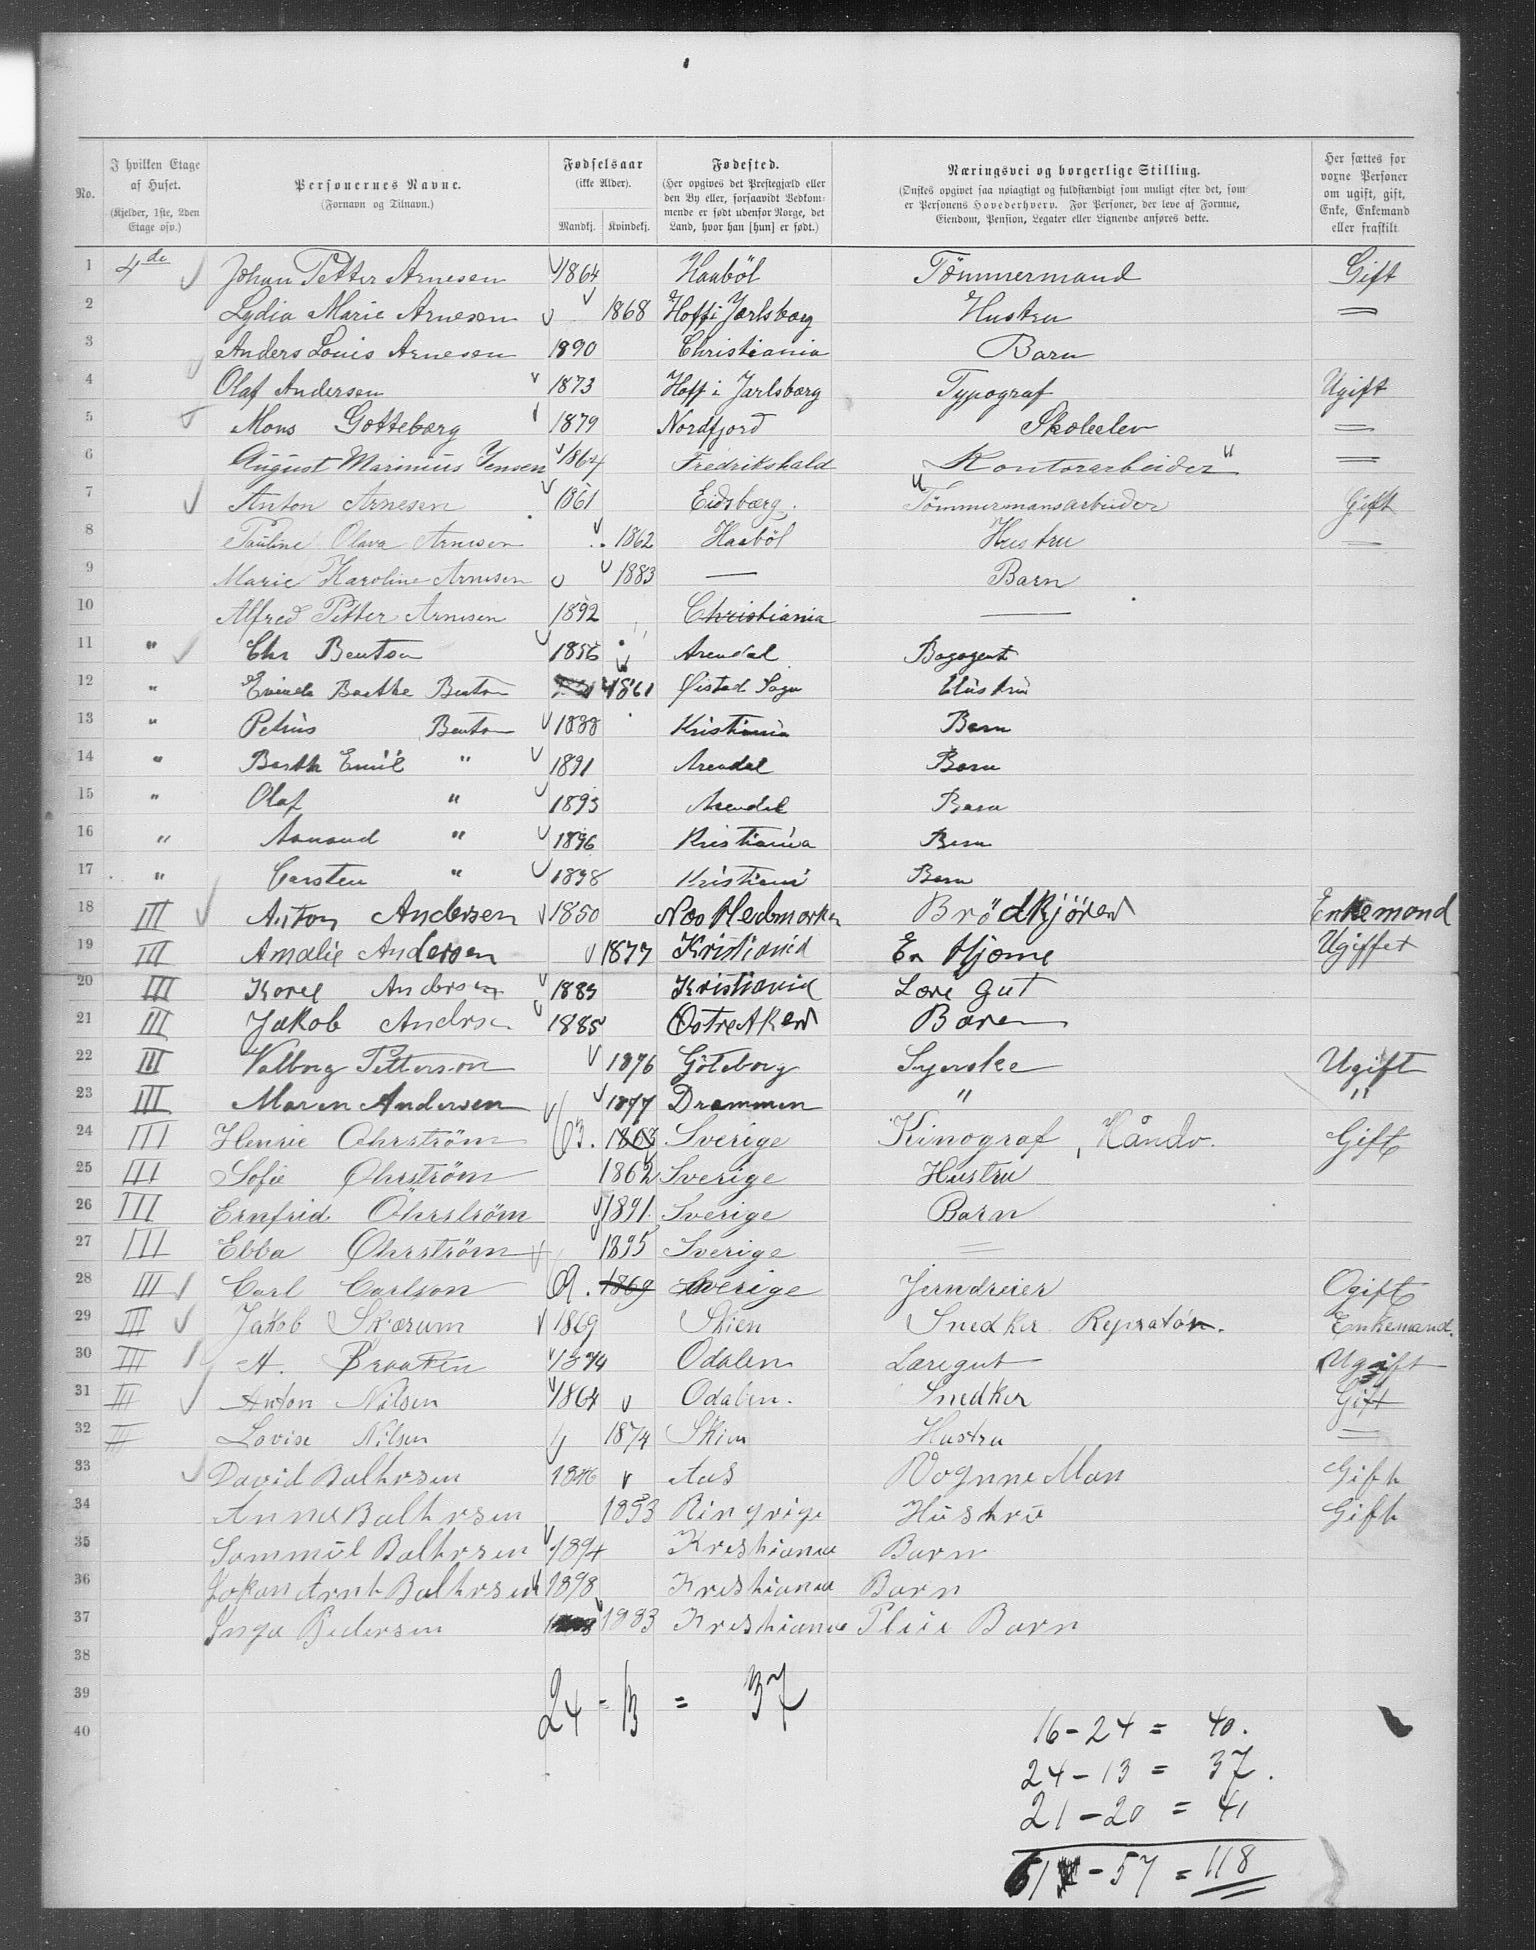 No. | I hvilken Etage af Huset. (Kjelder, 1ste, 2den Etage osv.) | Personernes Navne. (Fornavn og Tilnavn.) | Fødselsaar (ikke Alder). Mandkj. Kvindekj. | Fødested. (Her opgives det Prestegjæld eller den By eller, forsaavidt Vedkommende er født udenfor Norge, det Land, hvor han [hun] er født.) | Næringsvei og borgerlige Stilling. (Ønskes opgivet saa nøiagtigt og fuldstændigt som muligt efter det, som er Personens Hovederhverv. For Personer, der leve af Formue, Eiendom, Pension, Legater eller Lignende anføres dette.) | Her sættes for voxne Personer om ugift, gift, Enke, Enkemand eller fraskilt
1 4de Johan Petter Arnesen 1864 Haabøl Tömmermand Gift
2 Lydia Marie Arnesen 1868 Hoff i Jarlsbarg Hustru =
3 Anders Louis Arnesen 1890 Christiania Barn
4 Olaf Andersen 1873 Hoff i Jarlsbarg Typograf Ugift
5 Mons Gotteberg 1879 Nordfjord Skoleelev =
6 August Marinius Jensen 1864 Fredrikshald Kontorarbeider =
7 Anton Arnesen 1861 Eidsbarg. Tömmermansarbeider Gift
8 Pauline Olava Arnesen 1862 Haabøl Hustru —
9 Marie Karoline Arnesen 1883 — Barn
10 Alfred Petter Arnesen 1892 Christiania —
11 " Chr Bentson 1856 Arendal Bogagent
12 " Bertson 1861 Øistad Sogn Hustru
13 " Petrus Bentson 1888 Kristiania Barn
14 " Barth Emil " 1891 Arendal Barn
15 " Olaf " 1893 Arendal Barn
16 " Armand " 1896 Kristiania Barn
17 " Carsten " 1898 Kristiani Barn
18 III Anton Andersen 1850 Noo Hedmarken Brödkjörer Enkemond
19 III Amalie Andersen 1877 Kristianid Er Hjome Ugiffet
20 III Korel Andersen 1883 Kristianid Lore gut
21 III Jakob Andrsen 1885 Ostre Aker Baren
22 III Valborg Petterson 1876 Göteborg Syerske Ugift
23 III Maren Andersen 1877 Drammen " "
24 III Henrie Ohrström 63. 1863 Sverige Kinograf, Håndv. Gift
25 III Sofie Öhrström 1862 Sverige Hustru
26 III Ernfrid Öhrström 1891. Sverige Barn
27 III Ebba Öhrström 1895 Sverige =
28 III Carl Carlson 69. 1869 Sverige Jerndreier Ogift
29 III Jakob Skjærum 1869 Skien Snedker Repratör. Enkemand.
30 III A. Braaten 1874 Odalen Læregut Ugift
31 III Anton Nilsen 1864 Odalen. Snedker Gift
32 III Lovise Nilsen 1874 Skien Hustru =
33 David Balkrsen 1846 Aas Vognne Man Gift
34 Anne Balkrsen 1853 Ringrige Hüstrü Gift
35 Sammül Balkrsen 1894 Kreshianea Barn
36 Johan Arnt Balkrsen 1898 Kreshianea Barn
37 Inga Pedersen 1883 Kreshianea Pleie Barn
38
39
40
24 - 13 = 37
16 - 24 = 40.
24 - 13 = 37.
21 - 20 = 41
61 - 57 = 118